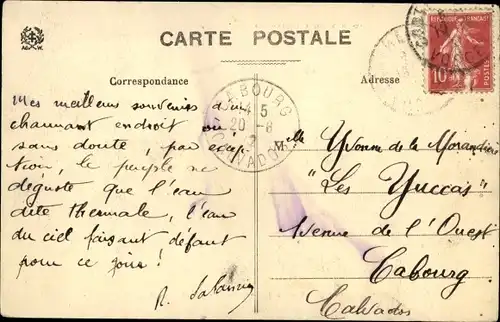 CARTE POSTALE
Correspondance
Adresse
REPUBLIQUE FRANÇAISE
10
POSTES
CABOURG
14 5
20-8
CALVADOS
Mes meilleurs souvenirs d'un
charmant endroit où
sans doute, par excep-
tion, le peuple ne
déguste que l'eau
dite thermale, l'eau
du ciel faisant défaut
pour ce jour !
R.
Mlle Yvonne de la Morandière
"Les Yuccas"
Avenue de l'Ouest
Cabourg
Calvados